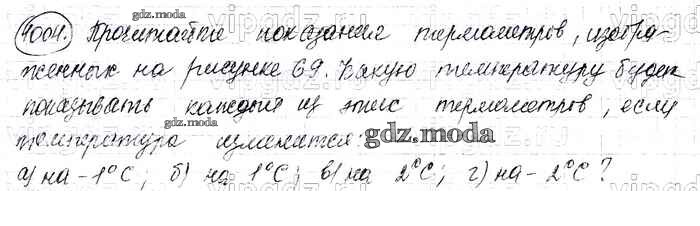 1004. Прочитайте показания термометров, изобра
женных на рисунке 69. Какую температуру будет
показывать каждый из этих термометров, если
температура изменится:
а) на -1°C; б) на 1°C; в) на 2°C; г) на -2°C?
gdz.moda
gdz.moda
gdz.moda
gdz.moda